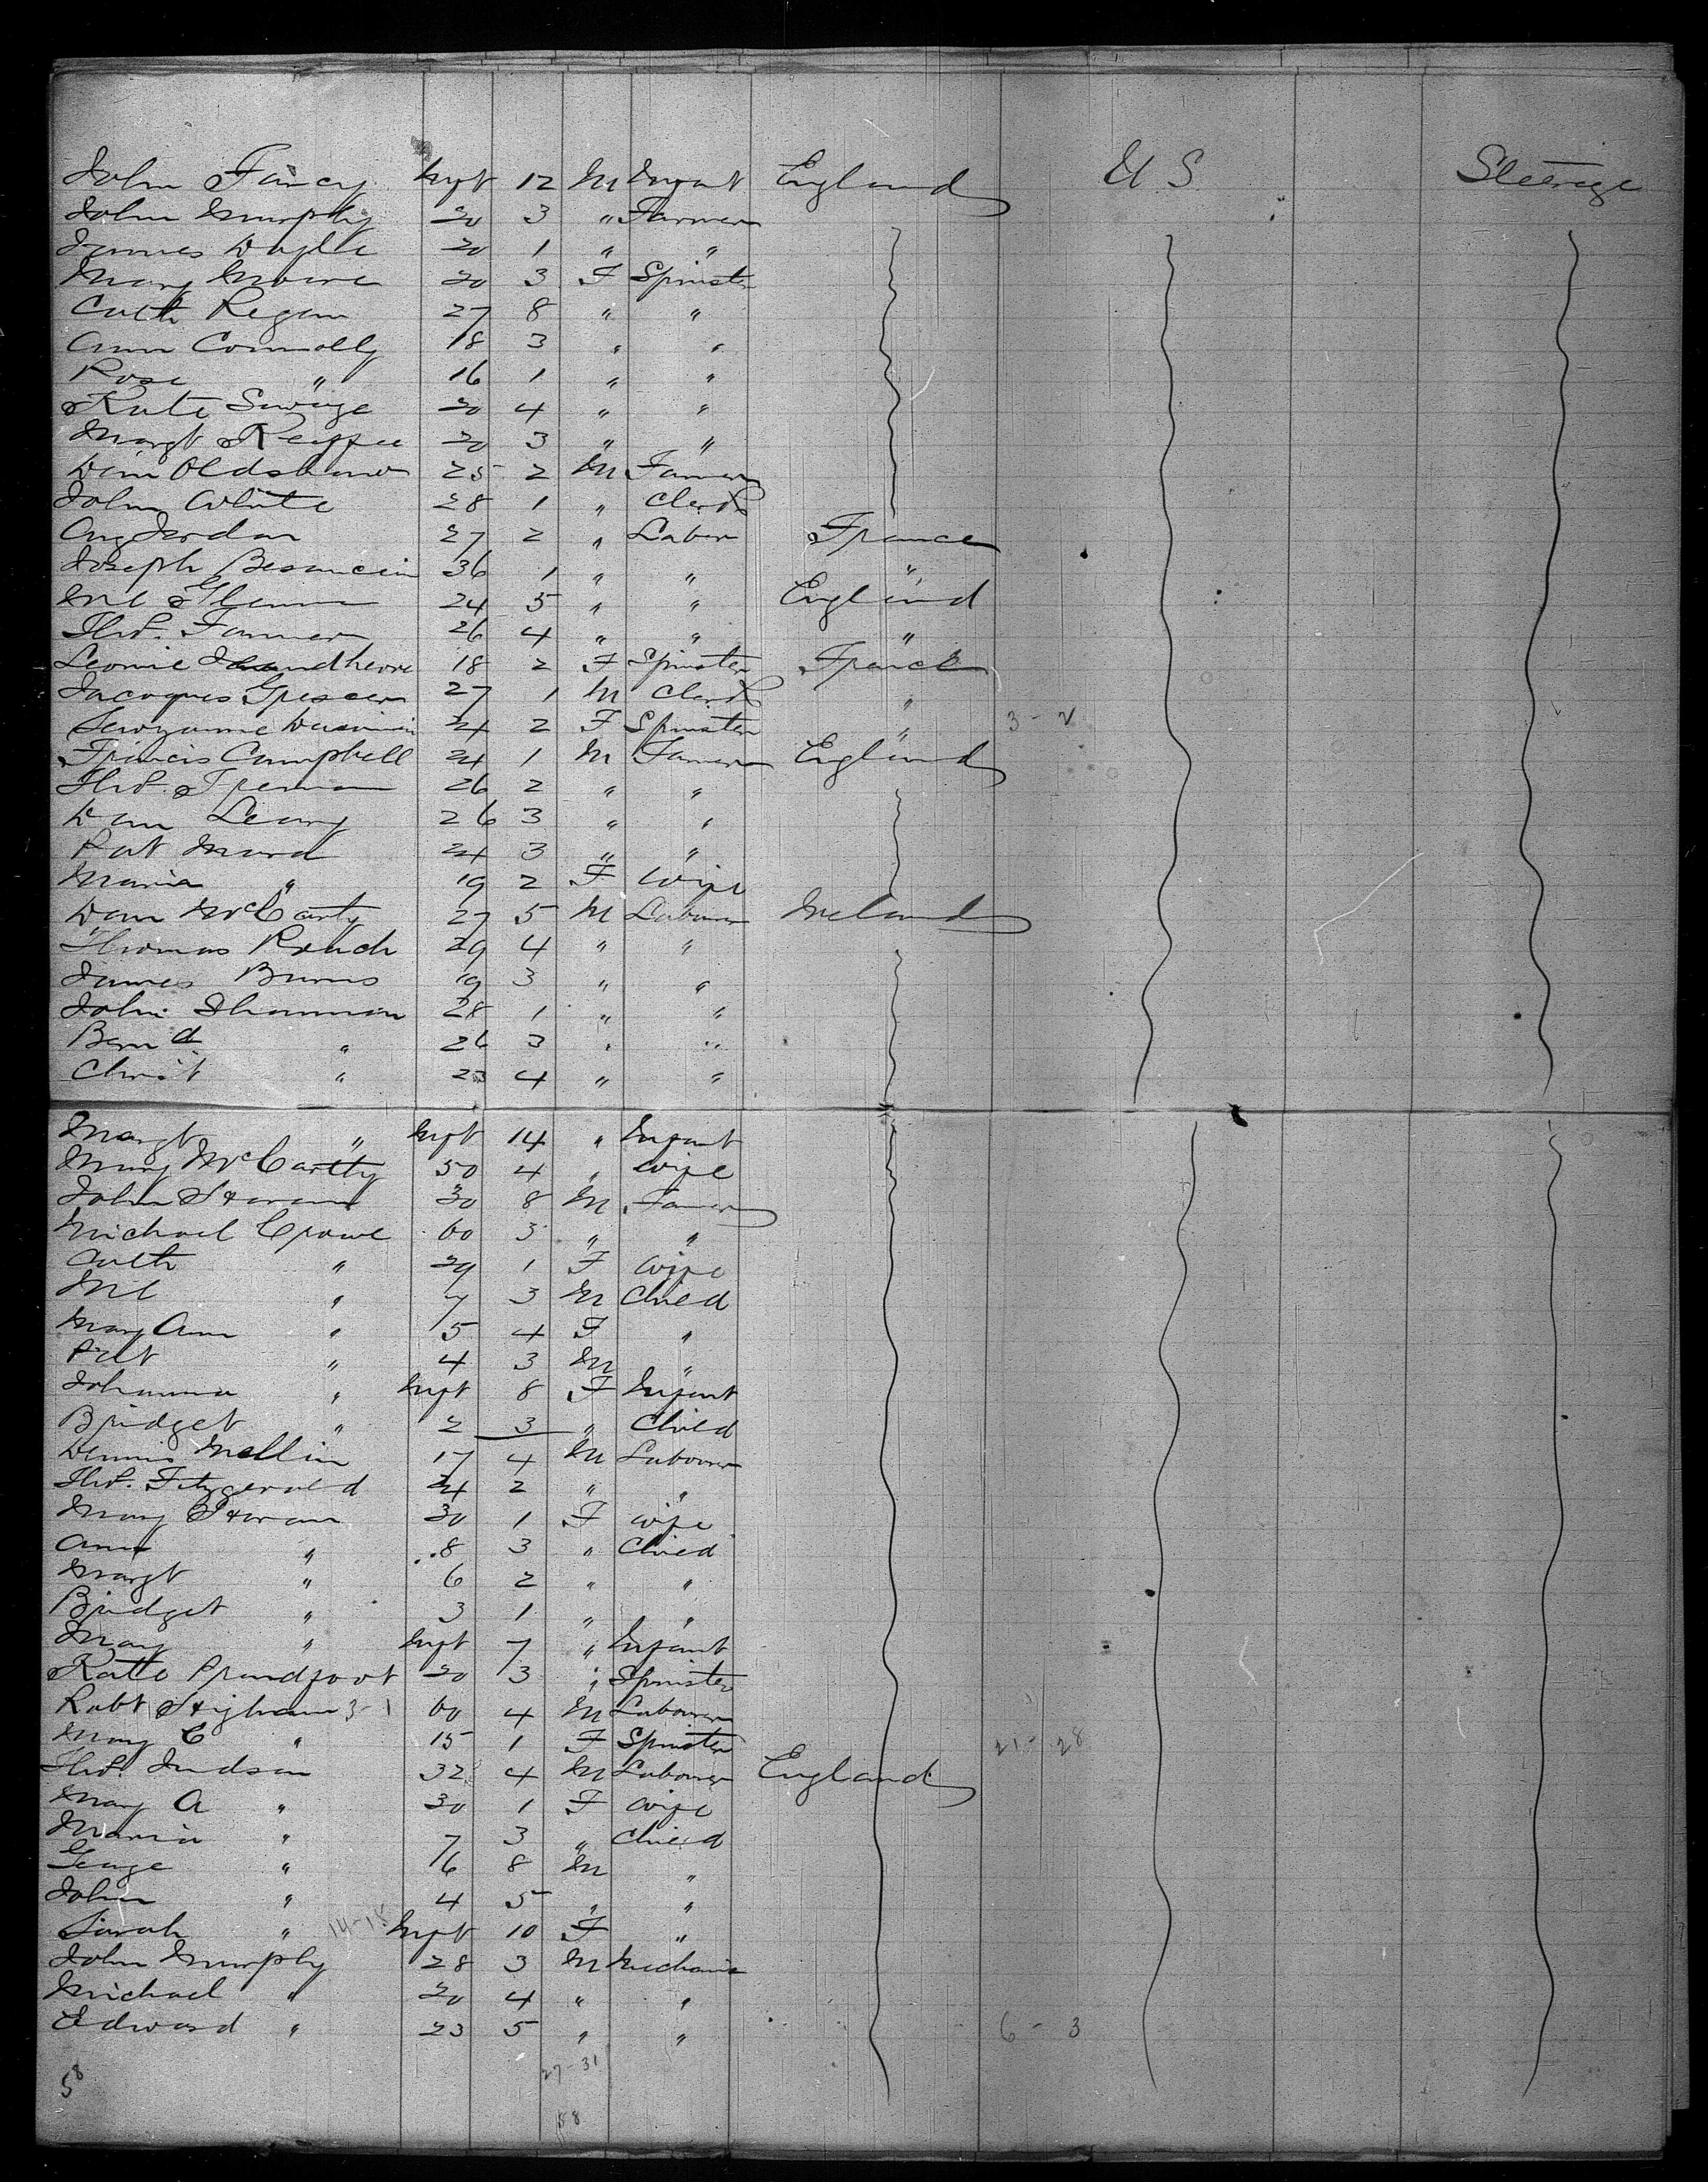 John Fancy Inft 12 M Infant England U S Steerage
John Murphy 20 3 " Farmer
James Doyle 20 1 " "
Mary Moore 20 3 F Spinster
Cath Regan 27 8 " "
Ann Connolly 18 3 " "
Rose " 16 1 " "
Kate Savage 20 4 " "
Margt Keeffee 20 3 " "
Oldshaw 25 2 M Farmer
John White 28 1 " Clerk
Aug Jordan 27 2 " Labor France
Joseph Besancein 36 1 " " "
Ml 24 5 " " England
Thos. Farmer 26 4 " " "
Leonie 18 2 F Spinster France
Jacoques 27 1 M Clerk "
24 2 F Spinster " 3 - 2
Francis Campbell 24 1 M Farmer England
Thos. Freman 26 2 " "
Dan Leary 26 3 " "
Pat Ward 24 3 " "
Maria " 19 2 F Wife
Dan McCarty 27 5 M Labourer Ireland
Thomas Roach 29 4 " "
James Burns 19 3 " "
John Shannon 28 1 " "
Bernd " 26 3 " "
Christ " 23 4 " "
Margt " Inft 14 " Infant
Mary McCartty 50 4 " Wife
John Horan 30 8 M Farmer
Michael Crowe 60 3 " "
Cath " 29 1 F Wife
Ml " 7 3 M Child
Mary Ann " 5 4 F "
Pat " 4 3 M "
Johanna " Inft 8 F Infant
Bridget " 2 3 " Child
Dennis Mellin 17 4 M Labourer
Thos. Fitzgerald 24 2 " "
Mary Horan 30 1 F Wife
Ann " 8 3 " Child
Margt " 6 2 " "
Bridget " 3 1 " "
Mary " Inft 7 " Infant
Kate Proudfoot 20 3 " Spinster
Robt 3-1 60 4 M Labourer
Mary C " 15 1 F Spinster 21-28
Thos. Judson 32 4 M Labourer England
Mary A " 30 1 F Wife
Maria " 7 3 " Child
George " 6 8 M "
John " 4 5 " "
Sarah " 14-18 Inft 10 F "
John Murphy 28 3 M Mechanic
Michael " 20 4 " "
Edward " 23 5 " " 6 - 3
58 27-31
58